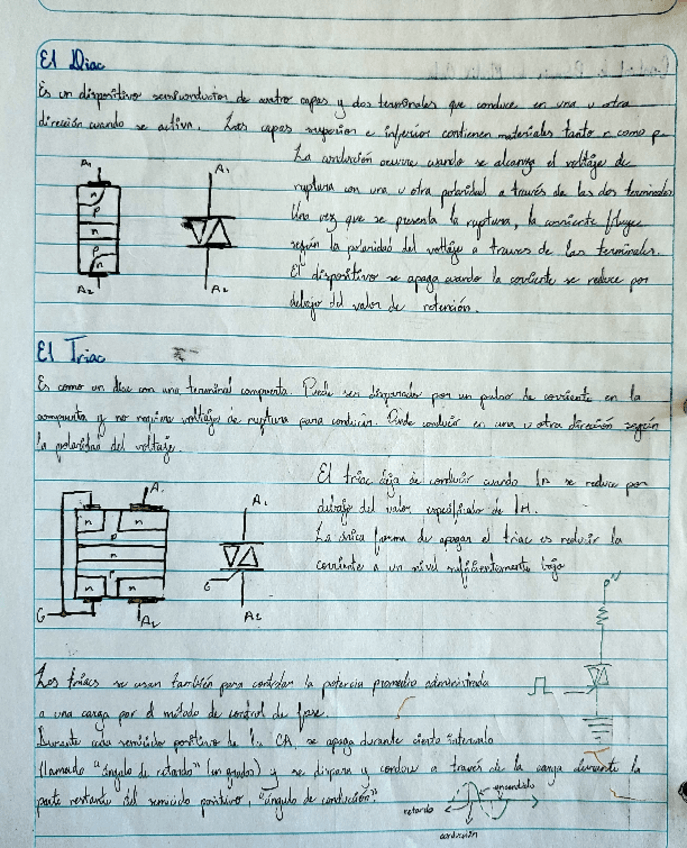 El Diac
Es un dispositivo semiconductor de cuatro capas y dos terminales que conduce en una u otra
dirección cuando se activa. Las capas superior e inferior contienen materiales tanto n como p.
La conducción ocurre cuando se alcanza el voltaje de
ruptura con una u otra polaridad a través de las dos terminales
Una vez que se presenta la ruptura, la corriente fluye
según la polaridad del voltaje a traves de las terminales.
El dispositivo se apaga cuando la corriente se reduce por
debajo del valor de retención.
A1
n
p
n
p
n
A2
A1
A2
El Triac
Es como un diac con una terminal compuerta. Puede ser disparado por un pulso de corriente en la
compuerta y no requiere voltaje de ruptura para conducir. Puede conducir en una u otra dirección según
la polaridad del voltaje.
El triac deja de conducir cuando IA se reduce por
debajo del valor especificado de IH.
La única forma de apagar el triac es reducir la
corriente a un nivel suficientemente bajo
A1
n
n
p
n
p
n
n
G
A2
A1
G
A2
Los triacs se usan también para controlar la potencia promedio administrada
a una carga por el método de control de fase.
Durante cada semiciclo positivo de la CA, se apaga durante cierto intervalo
(llamado "ángulo de retardo" (en grados) y se dispara y conduce a través de la carga durante la
parte restante del semiciclo positivo, "ángulo de conducción".
encendido
retardo
conducción